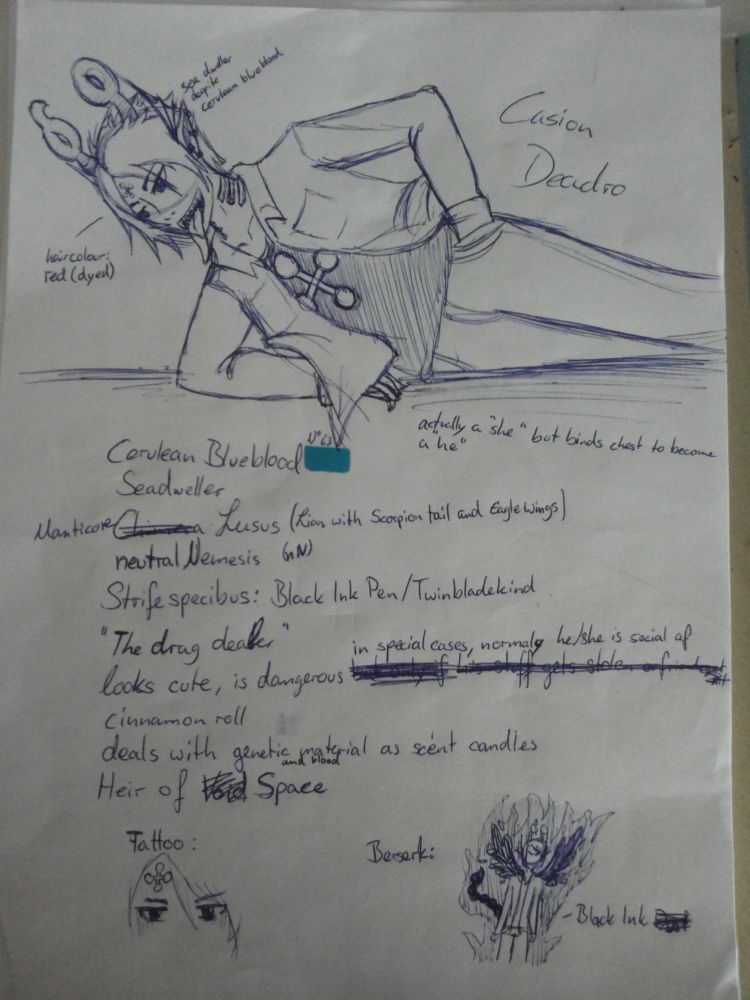 sea dweller
despite
cerulean blueblood
Casion
Deadro
haircolour:
red (dyed)
actually a "she" but binds chest to become
a "he"
N° 63
Cerulean Blueblood
Seadweller
Manticore Lusus (Lion with Scorpion tail and Eagle wings)
neutral Nemesis (nN)
Strife specibus: Black Ink Pen/Twinbladekind
"The drug dealer"
in special cases, normaly he/she is social af
looks cute, is dangerous
cinnamon roll
deals with genetic material as scent candles
and blood
Heir of Space
Tattoo:
Berserk:
Black Ink